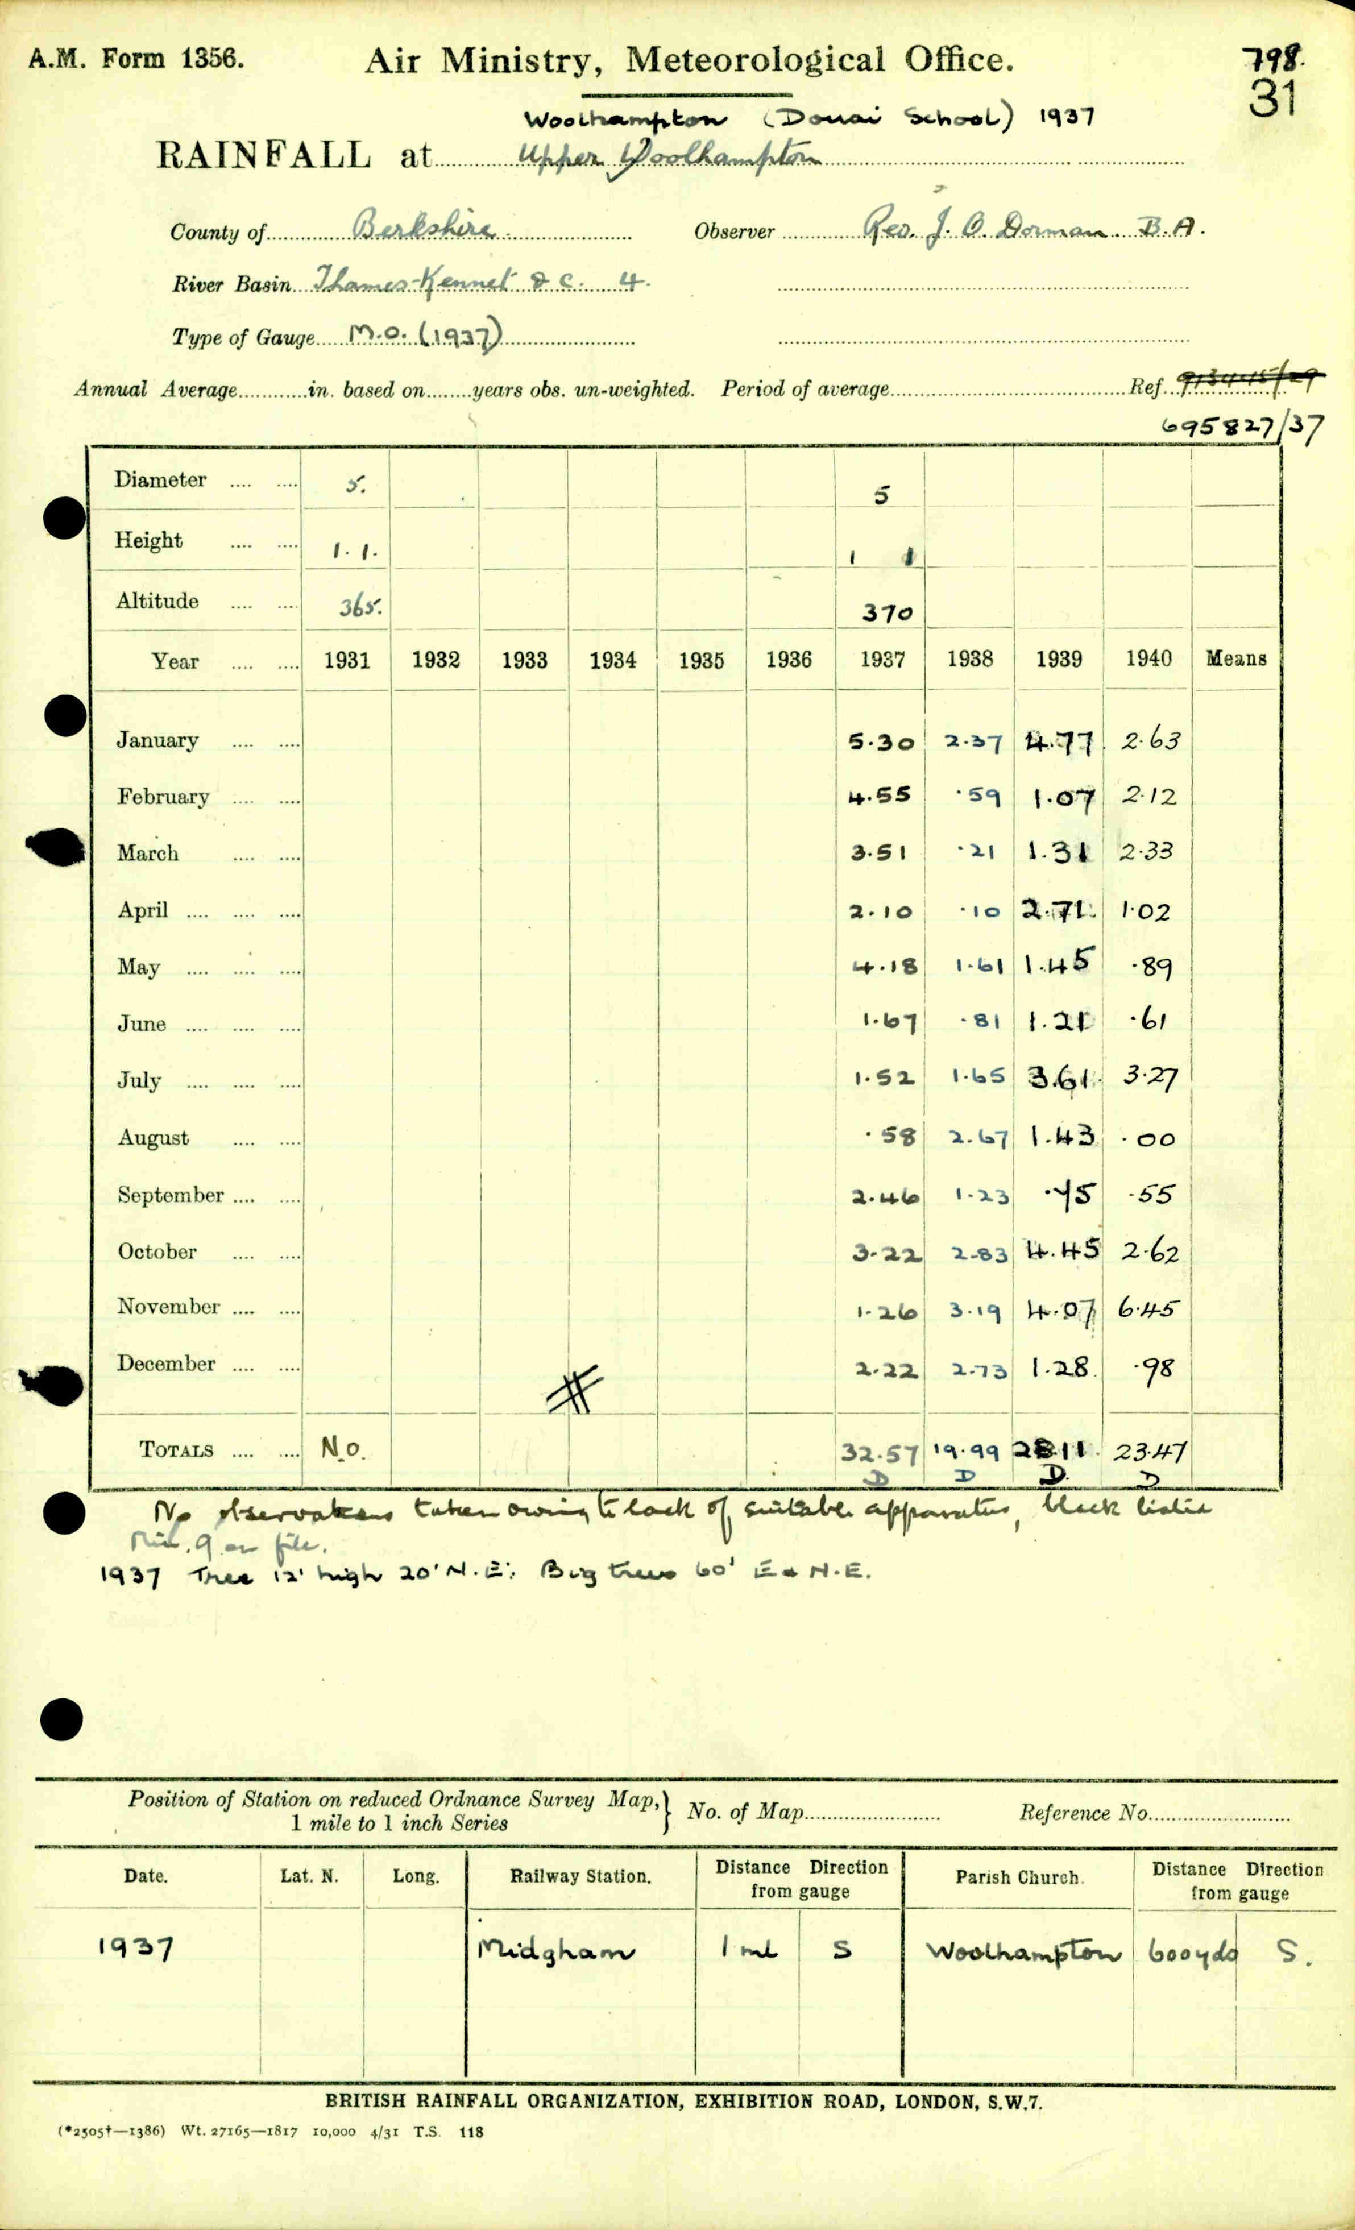 A.M. Form 1356. Air Ministry, Meteorological Office. 798.
31
Woolhampton (Douai School) 1937
RAINFALL at Upper Woolhampton
County of Berkshire Observer Rev. J. O. Dorman B.A.
River Basin Thames-Kennet & C. 4.
Type of Gauge M.O. (1937)
Annual Average in. based on years obs. un-weighted. Period of average Ref.
695827/37
Diameter 5. 5
Height 1. 1. 1 1
Altitude 365. 370
Year 1931 1932 1933 1934 1935 1936 1937 1938 1939 1940 Means
January 5.30 2.37 4.77 2.63
February 4.55 .59 1.07 2.12
March 3.51 .21 1.31 2.33
April 2.10 .10 2.71 1.02
May 4.18 1.61 1.45 .89
June 1.67 .81 1.21 .61
July 1.52 1.65 3.61 3.27
August .58 2.67 1.43 .00
September 2.46 1.23 .75 .55
October 3.22 2.83 4.45 2.62
November 1.26 3.19 4.07 6.45
December 2.22 2.73 1.28 .98
TOTALS No. 32.57 19.99 28.11 23.47
D D D D
No observations taken owing to lack of suitable apparatus, black listed
Min. 9 on file.
1937 Tree 12' high 20' N.E; Big trees 60' E & N.E.
Position of Station on reduced Ordnance Survey Map, } No. of Map Reference No.
1 mile to 1 inch Series
Date. Lat. N. Long. Railway Station. Distance Direction from gauge Parish Church. Distance Direction from gauge
1937 Midgham 1 ml S Woolhampton 600yds S.
BRITISH RAINFALL ORGANIZATION, EXHIBITION ROAD, LONDON, S.W.7.
(*2505†—1386) Wt. 27165—1817 10,000 4/31 T.S. 118